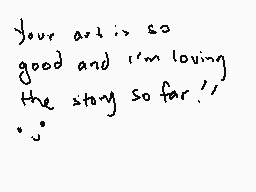 Your art is so
good and i'm loving
the story so far!!
:)